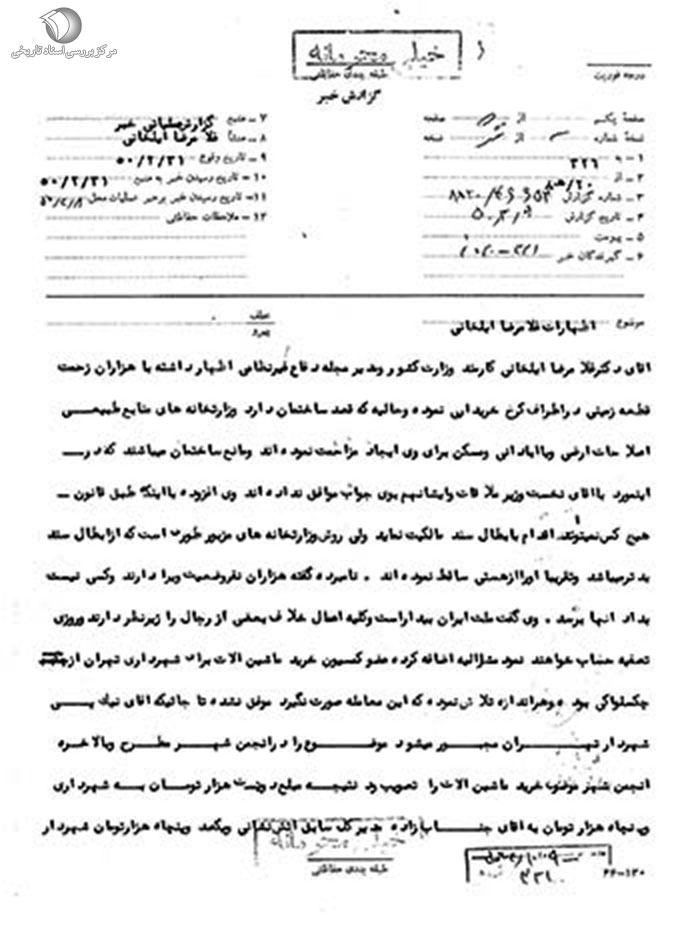 مرکز بررسی اسناد تاریخی
خیلی محرمانه
طبقه بندی حفاظتی
درجه فوریت
گزارش خبر
صفحه یکم از صفحه
نسخه شماره از نسخه
۱ – به ۳۲۱
۲ – از ۲۰/ ه ۸
۳ – شماره گزارش
۴ – تاریخ گزارش
۵ – پیوست
۶ – گیرندگان خبر
۷ – منبع گزارش عملیاتی خبر
۸ – منشأ غلا مرضا ایلخانی
۹ – تاریخ وقوع ۵۰/۲/۳۱
۱۰ – تاریخ رسیدن خبر به منبع ۵۰/۲/۳۱
۱۱ – تاریخ رسیدن خبر برهبر عملیات محل
۱۲ – ملاحظات حفاظتی
موضوع اظهارات غلا مرضا ایلخانی
عطف
پیرو
اقای دکترغلا مرضا ایلخانی کارمند وزارت کشور ومدیر مجله دفاع غیرنظامی اظهار داشته با هزاران زحمت
قطعه زمینی دراطراف کرج خریداری نموده وحالیه که قصد ساختمان دارد وزارتخانه های منابع طبیعی
اصلا حات ارضی ویاابادانی ومسکن برای وی ایجاد مزاحمت نموده اند ومانع ساختمان میباشند که در
اینمورد بااقای نخست وزیر ملا قات وایشانهم بوی جواب موافق نداده اند وی افزوده بااینکه طبق قانون –
هیچ کس نمیتواند اقدام بابطال سند مالکیت نماید ولی روش وزارتخانه های مزبور طوری است که ازابطال سند
بد ترمیباشد وتقریبا اورا ازهستی ساقط نموده اند . نامبرده گفته هزاران نفروضعیت ویرا دارند وکسی نیست
بداد انها برسد . وی گفت ملت ایران بیداراست وکلیه اعمال خلا ف بعضی از رجال را زیرنظر دارند وروزی
تصفیه حساب خواهند نمود مشارالیه اضافه کرده عضو کمسیون خرید ماشین الات برای شهرداری تهران از
چکسلواکی بوده وهراندازه تلا ش نموده که این معامله صورت نگیرد موفق نشده تا جائیکه اقای نیک پی
شهردار تهران مجبور میشود موضوع را درانجمن شهر مطرح وبالاخره
انجمن شهر خرید ماشین الات را تصویب ودر نتیجه مبلغ دویست هزار تومان به شهرداری
وپنجاه هزار تومان به اقای جناب زاده مدیر کل سابق اتش نشانی ویکصد وپنجاه هزارتومان شهردار
خیلی محرمانه
طبقه بندی حفاظتی
۲۴–۱۲۰